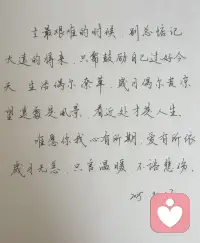 在最艰难的时候 别总惦记
太远的将来，只需鼓励自己过好今
天 生活偶尔潦草，岁月偶尔荒凉
望远皆是风景，看近处才是人生
唯愿你我心有所期，爱有所依
岁月无恙，只言温暖 不语悲伤.